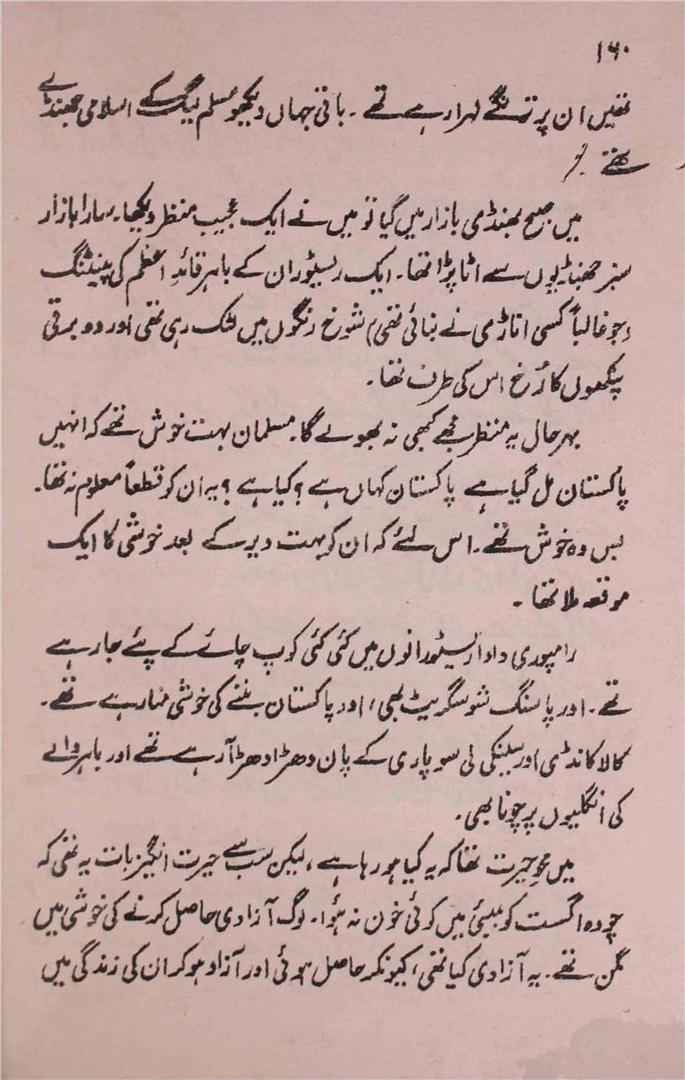 ۱۶۰
تھیں ان پر ترنگے لہرا رہے تھے ۔ باقی جہاں دیکھو مسلم لیگ کے اسلامی جھنڈے
تھے ۔
میں صبح بھنڈی بازار میں گیا تو میں نے ایک عجیب منظر دیکھا۔ سارا بازار
سبز جھنڈیوں سے اٹا پڑا تھا۔ ایک ریسٹوران کے باہر قائدِ اعظم کی پینٹنگ
(جو غالباً کسی اناڑی نے بنائی تھی) شوخ رنگوں میں لٹک رہی تھی اور دو برقی
پنکھوں کا رُخ اس کی طرف تھا۔
بہر حال یہ منظر مجھے کبھی نہ بھولے گا۔ مسلمان بہت خوش تھے کہ انہیں
پاکستان مل گیا ہے پاکستان کہاں ہے ؟ کیا ہے ؟ یہ ان کو قطعاً معلوم نہ تھا۔
بس وہ خوش تھے ۔ اس لئے کہ ان کو بہت دیر کے بعد خوشی کا ایک
موقعہ ملا تھا ۔
رامپوری دادا ریسٹورانوں میں کئی کئی کوپ چائے کے پئے جا رہے
تھے ۔ اور پاسنگ شو سگریٹ بھی، اور پاکستان بننے کی خوشی منا رہے تھے ۔
کالا کانڈی اور سلینکی لی سوپاری کے پان دھڑا دھڑ آ رہے تھے اور باہر والے
کی انگلیوں پر چونا بھی۔
میں محوِ حیرت تھا کہ یہ کیا ہو رہا ہے ، لیکن سب سے حیرت انگیز بات یہ تھی کہ
چودہ اگست کو بمبئی میں کوئی خون نہ ہُوا۔ لوگ آزادی حاصل کرنے کی خوشی میں
مگن تھے ۔ یہ آزادی کیا تھی، کیونکر حاصل ہوئی اور آزاد ہو کر ان کی زندگی میں